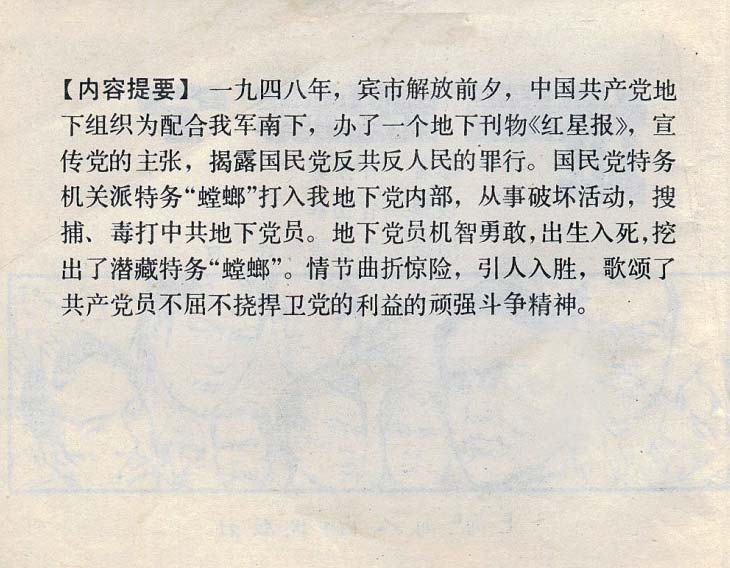 【内容提要】 一九四八年，宾市解放前夕，中国共产党地
下组织为配合我军南下，办了一个地下刊物《红星报》，宣
传党的主张，揭露国民党反共反人民的罪行。国民党特务
机关派特务“螳螂”打入我地下党内部，从事破坏活动，搜
捕、毒打中共地下党员。地下党员机智勇敢，出生入死，挖
出了潜藏特务“螳螂”。情节曲折惊险，引人入胜，歌颂了
共产党员不屈不挠捍卫党的利益的顽强斗争精神。